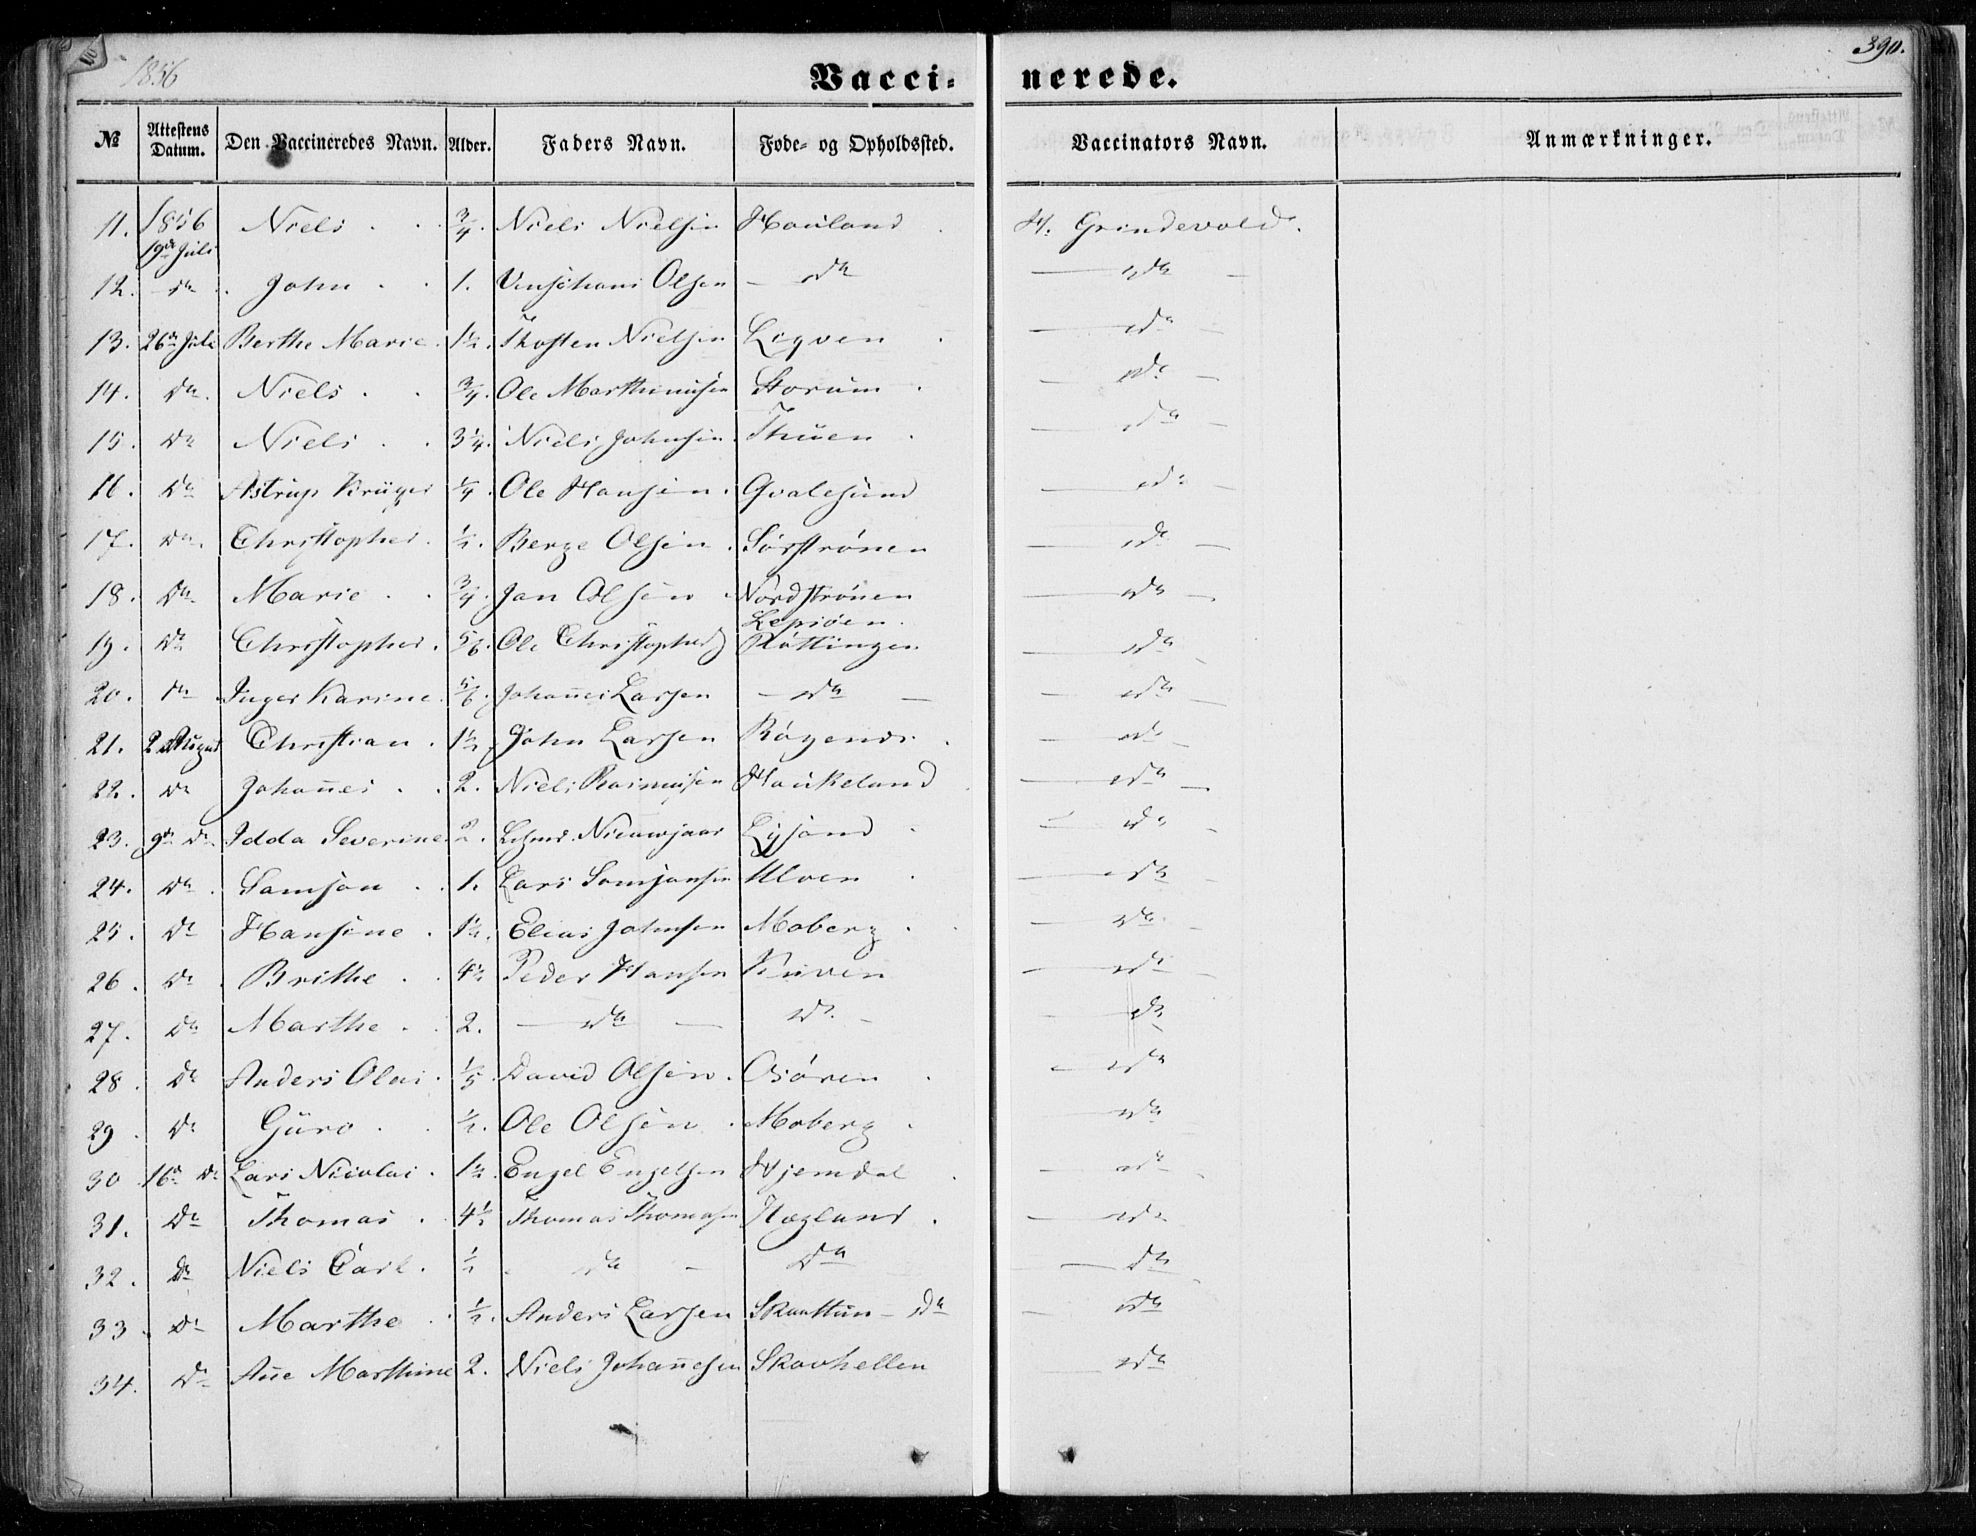 1856
390.
Vacci- nerede.
№ Attestens Datum. Den Vaccineredes Navn. Alder. Faders Navn. Føde- og Opholdssted. Vaccinators Navn. Anmærkninger.
11. 1856 19de Juli Niels 3/4. Niels Nielsen Hauland H. Grindevold.
12. do John 1. Olsen do do
13. 26de Juli Berthe Marie 1 1/2. Thosten Nielsen Liqven do
14. do Niels 3/4. Ole Marthinusen Storum do
15. do Niels 3 1/4. Niels Johnsen Thuen do
16. do Astrup Krüger 1/4. Ole Hansen Qvalesund do
17. do Christopher 1/2. Berge Olsen Sørstrønen do
18. do Marie 3/4. Jan Olsen Nordstrønen do
Lepsøen.
19. do Christopher. 5/6. Ole Christophers Røttingen do
20. do Inger Karine 5/6. Johañes Larsen do do
21. 2 August Christian 1 1/2. John Larsen Røgenes do
22. do Johañes 2. Niels Rasmusen Haukeland do
23. 9de do Idda Severine 2. Nieuwjaar Lysand do
24. do Samson 1. Lars Samsonsen Ulven do
25. do Hansine 1 1/2. Elias Johnsen Moberg do
26. do Brithe 4 1/2 Peder Hansen Kuven do
27. do Marthe 2. do do do
28. do Anders Olai 1/5. David Olsen Osøren do
29. do Guro 1/2. Ole Olsen Moberg do
30. 16de do Lars Nicolai 1 1/2. Engel Engelsen Hjemdal do
31. do Thomas 4 1/2 Thomas Thomasen Hægland do
32. do Niels Carl 1/2 do do do
33. do Marthe 1/2. Anders Larsen Skaattun - do do
34. do Añe Marthine 2. Niels Johañesen Skavhellen do